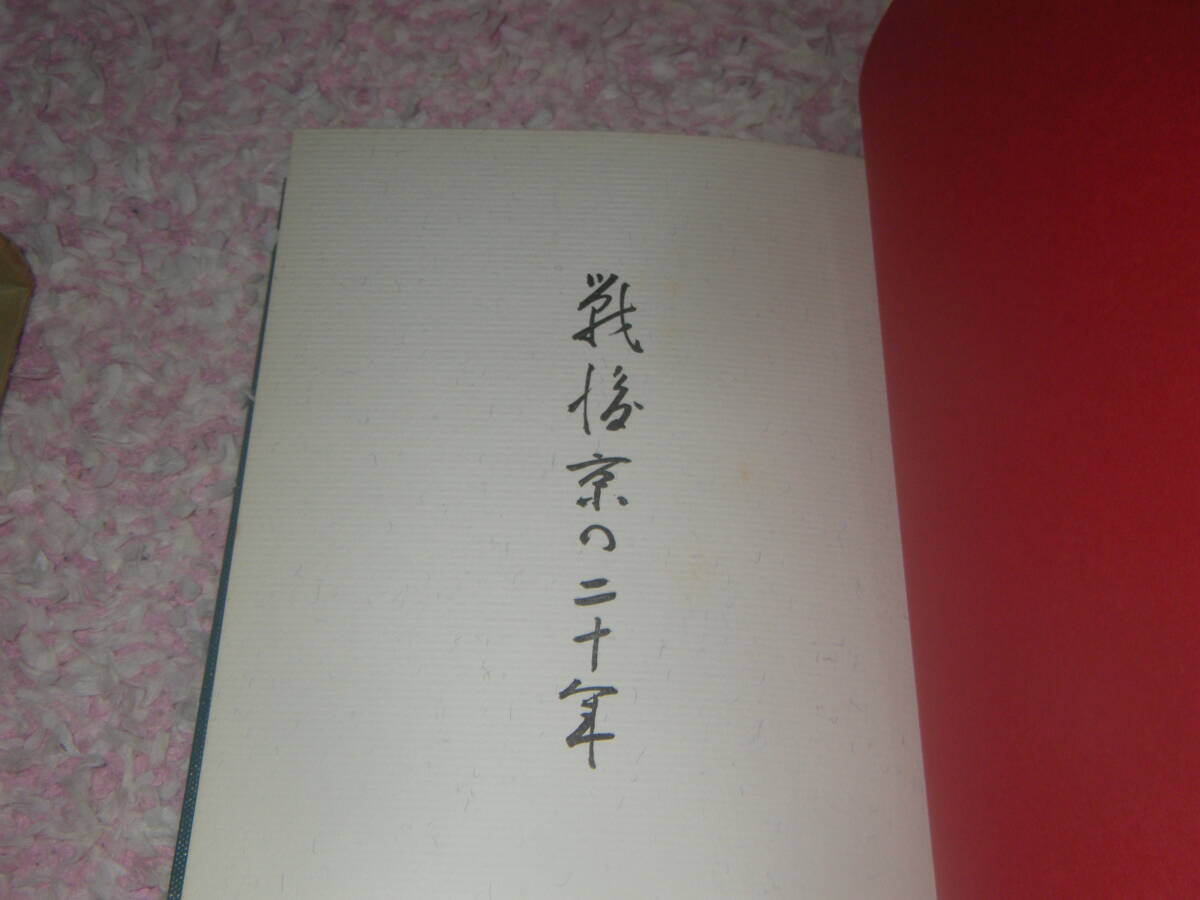 戦後京の二十年